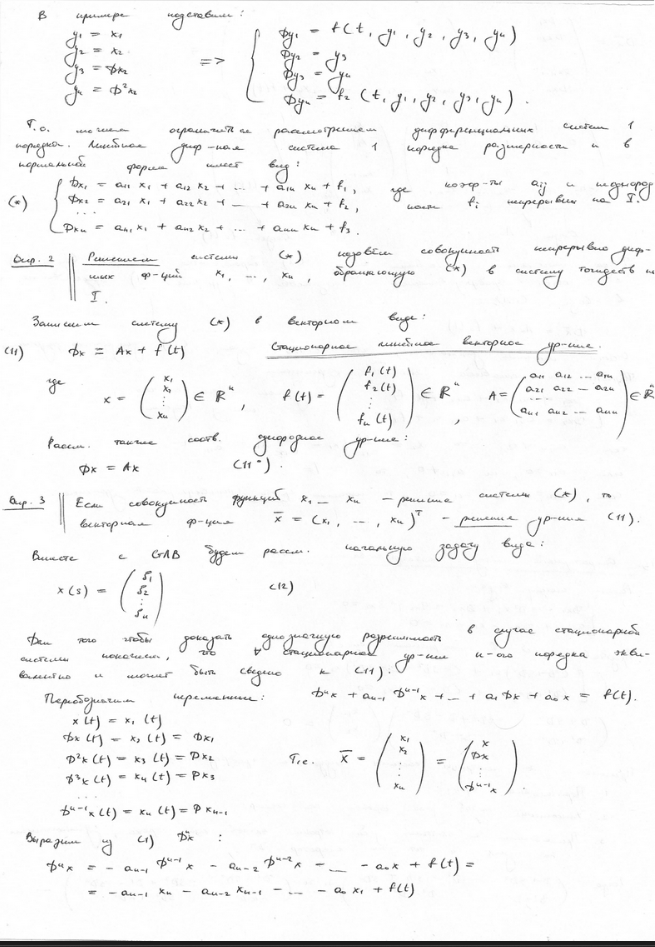 В примере подставим:
y₁ = x₁
y₂ = x₂
y₃ = Dx₂
y₄ = D²x₂
=> { Dy₁ = f(t, y₁, y₂, y₃, y₄)
Dy₂ = y₃
Dy₃ = y₄
Dy₄ = f₂(t, y₁, y₂, y₃, y₄).
Т.о. можем ограничиться рассмотрением дифференциальных систем 1
порядка. Линейная диф-ная система 1 порядка размерности n в
нормальной форме имеет вид:
(*) { Dx₁ = a₁₁ x₁ + a₁₂ x₂ + ... + a₁ₙ xₙ + f₁, где коэф-ты aᵢⱼ и неоднород
Dx₂ = a₂₁ x₁ + a₂₂ x₂ + ... + a₂ₙ xₙ + f₂, fᵢ непрерывн на I.
....
Dxₙ = aₙ₁ x₁ + aₙ₂ x₂ + ... + aₙₙ xₙ + f₃.
Опр. 2 Решением системы (*) назовём совокупность непрерывно диф-
мых ф-ций x₁, ..., xₙ, обращающую (*) в систему тождеств н
I.
Запишем систему (*) в векторном виде:
(11) Dx = Ax + f(t) Стационарное линейное векторное ур-ние.
где x = (x₁ x₂ ⋮ xₙ) ∈ ℝⁿ, f(t) = (f₁(t) f₂(t) ⋮ fₙ(t)) ∈ ℝⁿ, A = (a₁₁ a₁₂ ... a₁ₙ a₂₁ a₂₂ ... a₂ₙ .... aₙ₁ aₙ₂ ... aₙₙ) ∈ ℝⁿ
Рассм. также соотв. однородное ур-ние:
Dx = Ax (11°).
Опр. 3 Если совокупность функций x₁ ... xₙ - решение системы (*), то
векторная ф-ция x̄ = (x₁, ..., xₙ)ᵀ - решение ур-ния (11).
Вместе с будем рассм. начальную задачу вида:
x(s) = (ξ₁ ξ₂ ⋮ ξₙ) (12)
Для того чтобы доказать однозначную разрешимость в случае стационарной
системы покажем, что ∀ стационарное ур-ние n-ого порядка экви-
валентно и может быть сведено к (11).
Переобозначим переменные: Dⁿx + aₙ₋₁ Dⁿ⁻¹x + ... + a₁ Dx + a₀ x = f(t).
x(t) = x₁(t)
Dx(t) = x₂(t) = Dx₁
D²x(t) = x₃(t) = Dx₂
D³x(t) = x₄(t) = Dx₃
....
Dⁿ⁻¹x(t) = xₙ(t) = Dxₙ₋₁
Т.е. x̄ = (x₁ x₂ ⋮ xₙ) = (x Dx ⋮ Dⁿ⁻¹x).
Выразим из (1) Dⁿx :
Dⁿx = -aₙ₋₁ Dⁿ⁻¹x - aₙ₋₂ Dⁿ⁻²x - ... - a₀x + f(t) =
= -aₙ₋₁ xₙ - aₙ₋₂ xₙ₋₁ - ... - a₀ x₁ + f(t)